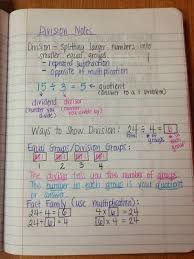 Division Notes
Division = Splitting larger numbers into
smaller equal groups.
- repeated subtraction
- opposite of multiplication
15 ÷ 3 = 5 quotient
(answer to a ÷ problem)
dividend divisor
(number you divide) (number you divide by)
Ways to Show Division: 24 ÷ 4 = 6
# of groups
Equal Groups/Division Groups:
1 2 3 4
The divisor tells you the number of groups.
The number in each group is your quotient
or answer.
Fact Family (use multiplication):
24 ÷ 4 = 6 4 x 6 = 24
24 ÷ 6 = 4 6 x 4 = 24